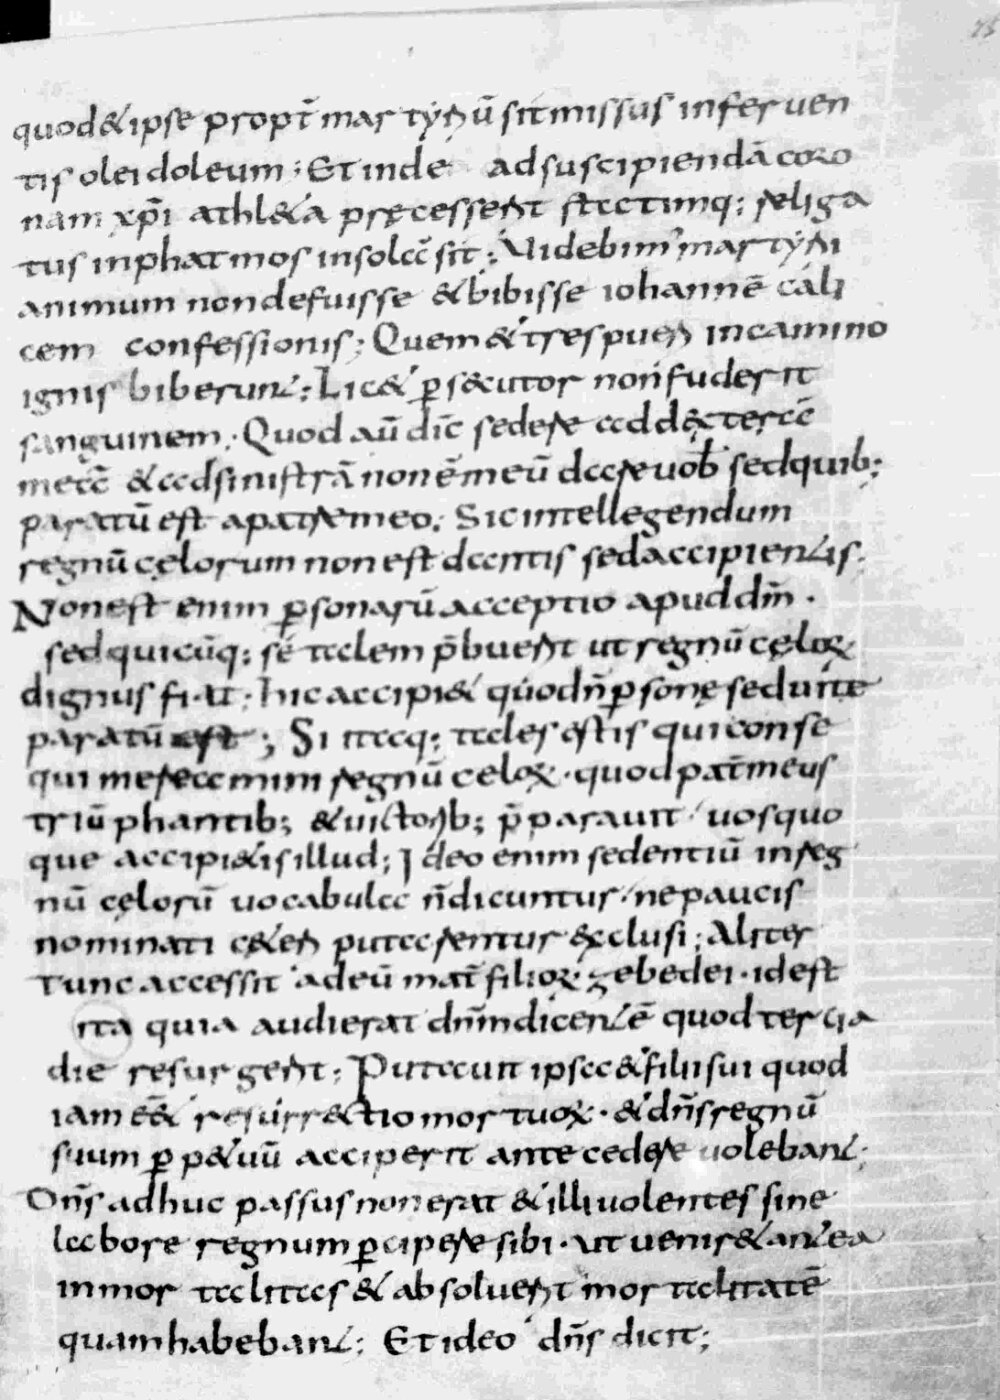 quod & ipse propt̄ martyriū sit missus in feruen
tis olei doleum ; Et inde ad suscipiendā coro
nam xp̄i athl&a pręcesserit statimq; religa
tus in phatmos insolā sit ; Uidebim' martyrii
animum non defuisse & bibisse iohannē cali
cem confessionis ; Quem & tres pueri in camino
ignis biberunt ; Lic& p̱s&cutor non fuderit
sanguinem . Quod aū dic̄ sedere ad d&xterā
meā & ad sinistrā non ē meū dare uob̄ sed quib;
paratū est a patre meo ; Sic intellegendum
regnū cęlorum non est dantis sed accipientis ;
Non est enim p̱sonarū acceptio apud dm̄ .
sed quicūq; sē talem p̄buerit ut regnū cęloꝝ
dignus fiat ; hic accipi& quod n̄ p̱sonę sed uitę
paratū est ; Si itaq; tales estis qui conse
quimere a mini regnū celoꝝ . quod pat̄ meus
triūphantib; & uictorib; p̄parauit uos quo
que accipi&is illud ; Ideo enim sedentiū in reg
nū cęlorū uocabula n̄ dicuntur ne paucis
nominati c&eri putarentur &xclusi ; Aliter
Tunc accessit ad eū mat̄ filioꝝ zebedei . id est
ita quia audierat dn̄m dicentē quod tercia
die resurgerit ; Putauit ipsa & filii sui quod
iam ē& resurr&ctio mortuoꝝ . & dn̄s regnū
suum p̱p&uū acciperit antecedere uolebant ;
Dn̄s adhuc passus non erat & illi uolentes sine
labore regnum p̱cipere sibi . ut uenir& antea
inmortalitas & absoluerit mortalitatē
quam habebant ; Et ideo dn̄s dicit ;